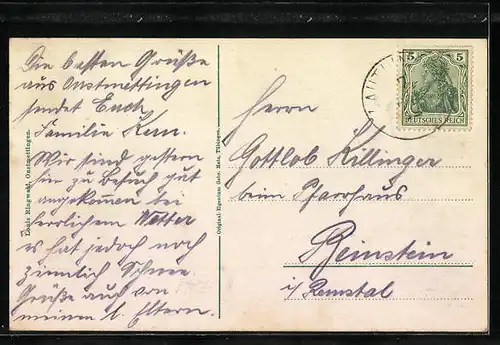 Die besten Grüße
aus Onstmettingen
sendet Euch
Familie Kern.
Wir sind gestern
hier zu Besuch gut
angekommen bei
herrlichem Wetter
es hat jedoch noch
ziemlich Schnee.
Grüße auch von
meinen l. Eltern.
Louis Ringwald, Onstmettingen.
Original-Eigentum Gebr. Metz, Tübingen.
5 5
DEUTSCHES REICH
Herrn
Gottlob Killinger
beim Pfarrhaus
Beinstein
i/ Remstal